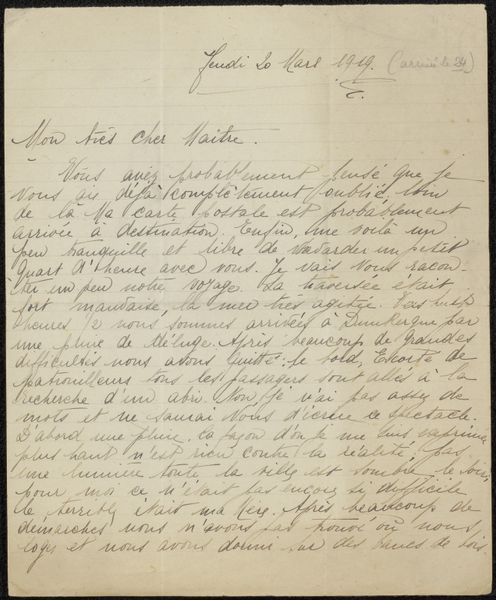 Jeudi 20 Mars 1919. (arrivée le 24)
Mon très cher Maitre.
Vous avez probablement pensé que je
vous ais déjà complètement oublié, loin
de là. Ma carte postale est probablement
arrivée à destination. Enfin, me voilà un
peu tranquille et libre de bavarder un petit
quart d'heure avec vous. Je vais vous racon-
ter un peu notre voyage. La traversée était
fort mauvaise, la mer très agitée.
heures 1/2 nous sommes arrivés à Dunkerque par
une pluie de déluge. Après beaucoup de grandes
difficultés nous avons quitté le bord, Escorté de
patrouilleurs tous les passagers sont allés à la
recherche d'un abri. Non je n'ai pas assez de
mots et ne saurai vous décrire ce spectacle.
D'abord une pluie. La façon d'on je me suis exprimé
plus haut n'est rien contre la réalité, pas
une lumière toute la ville est sombre le soir,
pour moi ce n'était pas encore si difficile
le terrible était ma Après beaucoup de
démarches nous n'avons pas trouvé où nous
loger et nous avons dormi sur des bancs de bois.